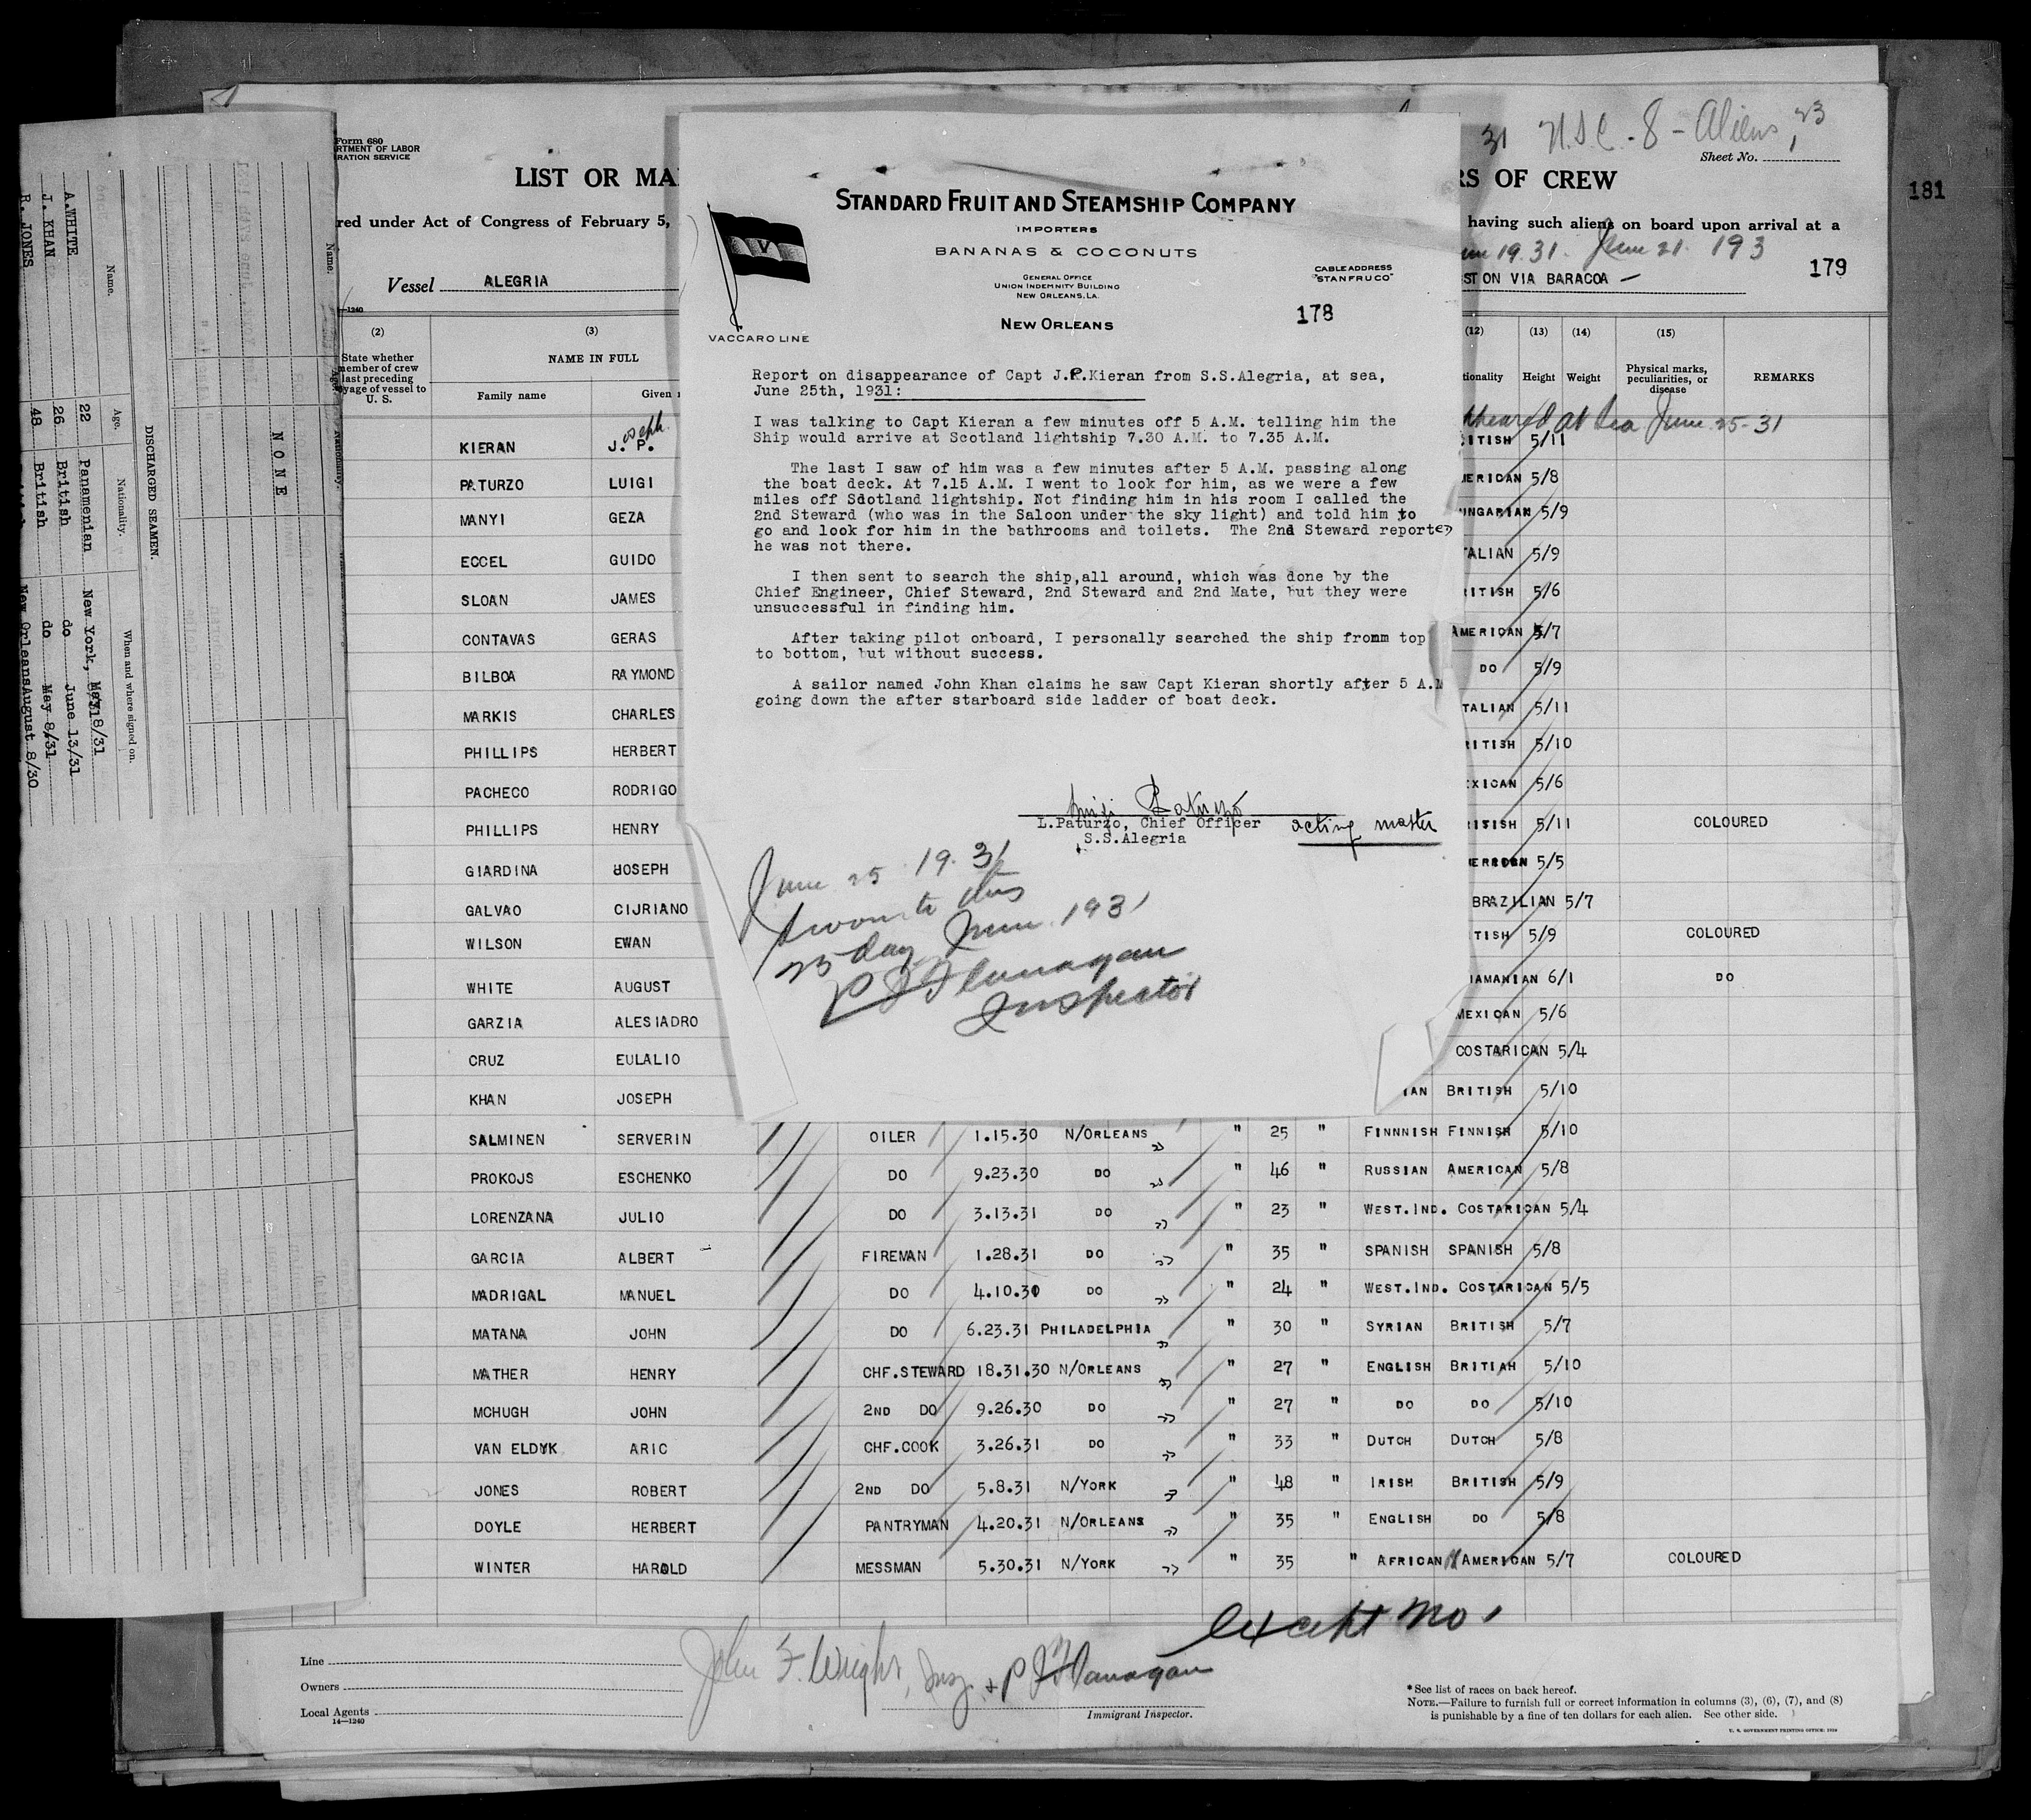 Form 680
RTMENT OF LABOR
RATION SERVICE
31 N.S.C. - 8 - Aliens, 23
Sheet No.
LIST OR MA
RS OF CREW
181
red under Act of Congress of February 5,
having such aliens on board upon arrival at a
June 21 193
Vessel ALEGRIA
STON VIA BARACOA —
179
14—1240
STANDARD FRUIT AND STEAMSHIP COMPANY
IMPORTERS
BANANAS & COCONUTS
GENERAL OFFICE
UNION INDEMNITY BUILDING
NEW ORLEANS, LA.
CABLE ADDRESS
"STANFRUCO"
V
VACCARO LINE
NEW ORLEANS
178
Report on disappearance of Capt J.P.Kieran from S.S.Alegria, at sea,
June 25th, 1931:
I was talking to Capt Kieran a few minutes off 5 A.M. telling him the
Ship would arrive at Scotland lightship 7.30 A.M. to 7.35 A.M.
The last I saw of him was a few minutes after 5 A.M. passing along
the boat deck. At 7.15 A.M. I went to look for him, as we were a few
miles off Sdotland lightship. Not finding him in his room I called the
2nd Steward (who was in the Saloon under the sky light) and told him to
go and look for him in the bathrooms and toilets. The 2nd Steward reported
he was not there.
I then sent to search the ship,all around, which was done by the
Chief Engineer, Chief Steward, 2nd Steward and 2nd Mate, but they were
unsuccessful in finding him.
After taking pilot onboard, I personally searched the ship fromm top
to bottom, but without success.
A sailor named John Khan claims he saw Capt Kieran shortly after 5 A.M
going down the after starboard side ladder of boat deck.
Luigi Paturzo
L.Paturzo, Chief Officer acting master
S.S.Alegria
June 25 19.31
Sworn to this
25 day June 1931
P J Flanagan
Inspector
(2) (3) (12) (13) (14) (15)
State whether
member of crew
last preceding
voyage of vessel to
U. S.
NAME IN FULL
Family name Given
tionality Height Weight
Physical marks,
peculiarities, or
disease
REMARKS
at Sea June 25-31
KIERAN J. P. Joseph ITISH 5/11
PATURZO LUIGI MERICAN 5/8
MANYI GEZA UNGARIAN 5/9
ECCEL GUIDO TALIAN 5/9
SLOAN JAMES ITISH 5/6
CONTAVAS GERAS AMERICAN 5/7
BILBOA RAYMOND DO 5/9
MARKIS CHARLES TALIAN 5/11
PHILLIPS HERBERT RITISH 5/10
PACHECO RODRIGO EXICAN 5/6
PHILLIPS HENRY 5/11 COLOURED
GIARDINA JOSEPH 5/5
GALVAO CIJRIANO BRAZILIAN 5/7
WILSON EWAN TISH 5/9 COLOURED
WHITE AUGUST NAMANIAN 6/1 DO
GARZIA ALESIADRO MEXICAN 5/6
CRUZ EULALIO COSTARICAN 5/4
KHAN JOSEPH IAN BRITISH 5/10
SALMINEN SERVERIN OILER 1.15.30 N/ORLEANS " 25 " FINNNISH FINNISH 5/10
PROKOJS ESCHENKO DO 9.23.30 DO " 46 " RUSSIAN AMERICAN 5/8
LORENZANA JULIO DO 3.13.31 DO " 23 " WEST.IND. COSTARICAN 5/4
GARCIA ALBERT FIREMAN 1.28.31 DO " 35 " SPANISH SPANISH 5/8
MADRIGAL MANUEL DO 4.10.30 DO " 24 " WEST.IND. COSTARICAN 5/5
MATANA JOHN DO 6.23.31 PHILADELPHIA " 30 " SYRIAN BRITISH 5/7
MATHER HENRY CHF.STEWARD 18.31.30 N/ORLEANS " 27 " ENGLISH BRITIAH 5/10
MCHUGH JOHN 2ND DO 9.26.30 DO " 27 " DO DO 5/10
VAN ELDYK ARIC CHF.COOK 3.26.31 DO " 33 " DUTCH DUTCH 5/8
JONES ROBERT 2ND DO 5.8.31 N/YORK " 48 " IRISH BRITISH 5/9
DOYLE HERBERT PANTRYMAN 4.20.31 N/ORLEANS " 35 " ENGLISH DO 5/8
WINTER HAROLD MESSMAN 5.30.31 N/YORK " 35 " AFRICAN AMERICAN 5/7 COLOURED
except No 1
Line
Owners
Local Agents
14—1240
John F. Wright, Insp. + P J Flanagan
Immigrant Inspector.
*See list of races on back hereof.
NOTE.—Failure to furnish full or correct information in columns (3), (6), (7), and (8)
is punishable by a fine of ten dollars for each alien. See other side.
U. S. GOVERNMENT PRINTING OFFICE: 1930
DISCHARGED SEAMEN.
Name. Age. Nationality. When and where signed on.
A.WHITE 22 Panamenian New York, 8/31
J. KHAN 26 British do June 13/31
R. JONES 48 British do May 8/31
New Orleans August 8/30
NONE
Name.
Age.
Nationality.